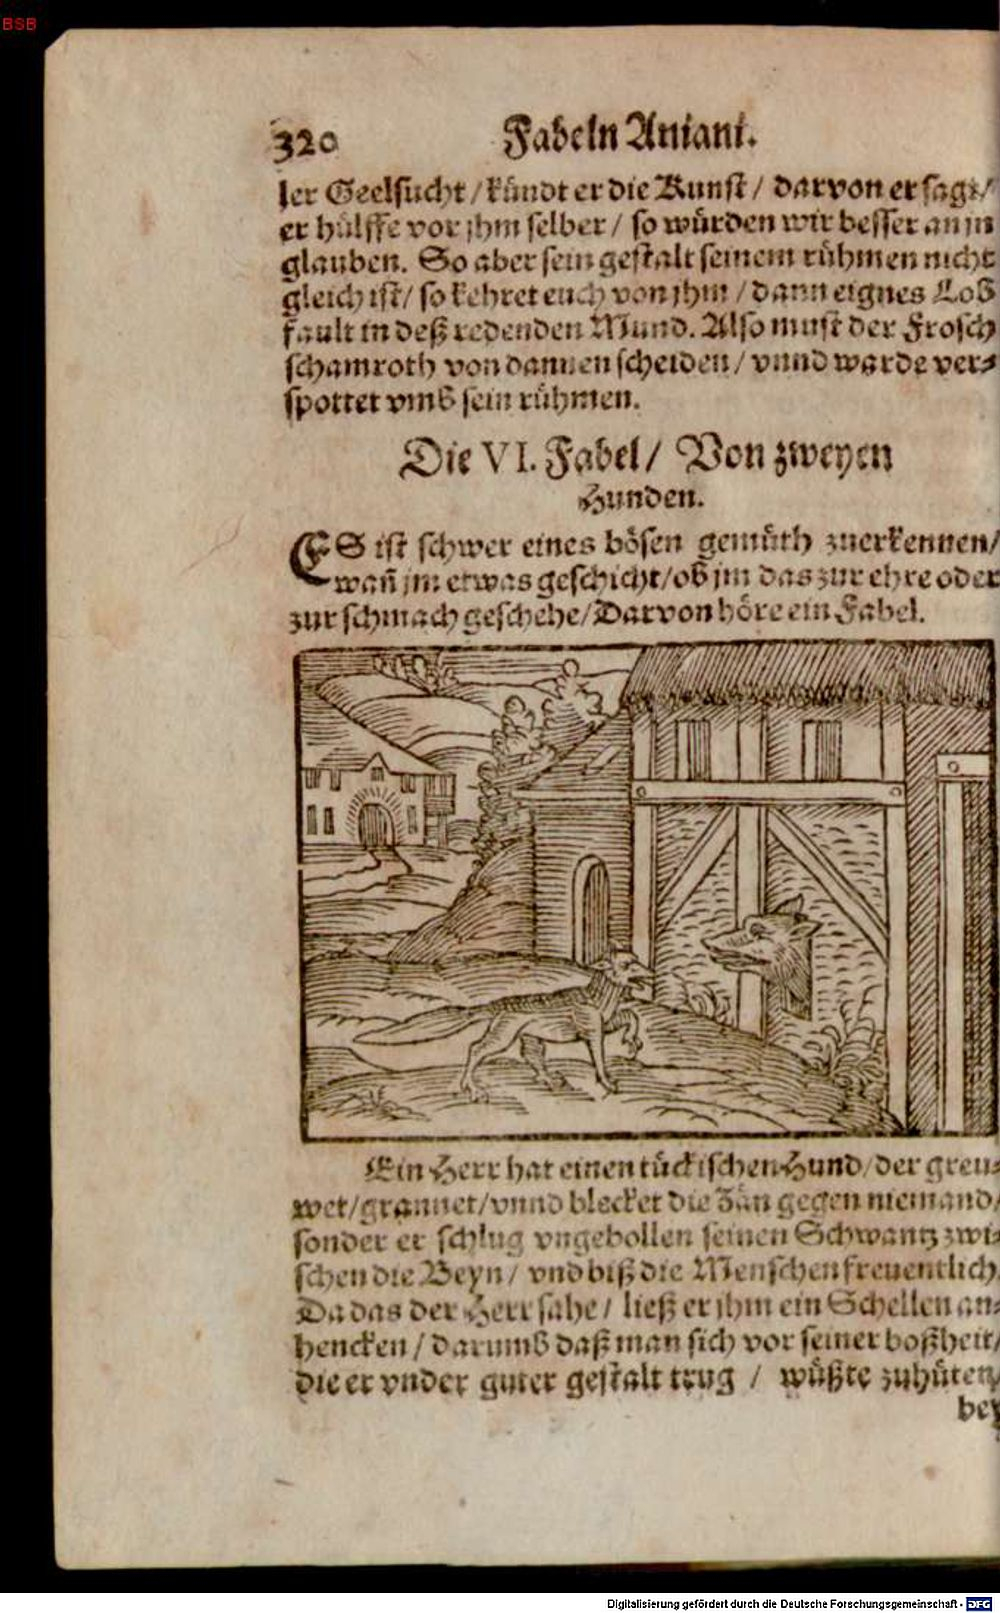 BSB
320 Fabeln Aniani.
ler Geelsucht / kündt er die Kunst / darvon er sagt /
er hülffe vor jhm selber / so würden wir besser an jn
glauben. So aber sein gestalt seinem rühmen nicht
gleich ist / so kehret euch von jhm / dann eignes Lob
fault in deß redenden Mund. Also must der Frosch
schamroth von dannen scheiden / vnnd warde ver-
spottet vmb sein rühmen.
Die VI. Fabel / Von zweyen
Hunden.
ES ist schwer eines bösen gemüth zuerkennen /
wañ jm etwas geschicht / ob jm das zur ehre oder
zur schmach geschehe / Darvon höre ein Fabel.
Ein Herr hat einen tückischen Hund / der greu-
wet / grannet / vnnd blecket die Zän gegen niemand /
sonder er schlug vngebollen seinen Schwantz zwi-
schen die Beyn / vnd biß die Menschen freuentlich.
Da das der Herr sahe / ließ er jhm ein Schellen an-
hencken / darumb daß man sich vor seiner boßheit /
die er vnder guter gestalt trug / wüßte zuhüten /
bey
Digitalisierung gefördert durch die Deutsche Forschungsgemeinschaft - DFG